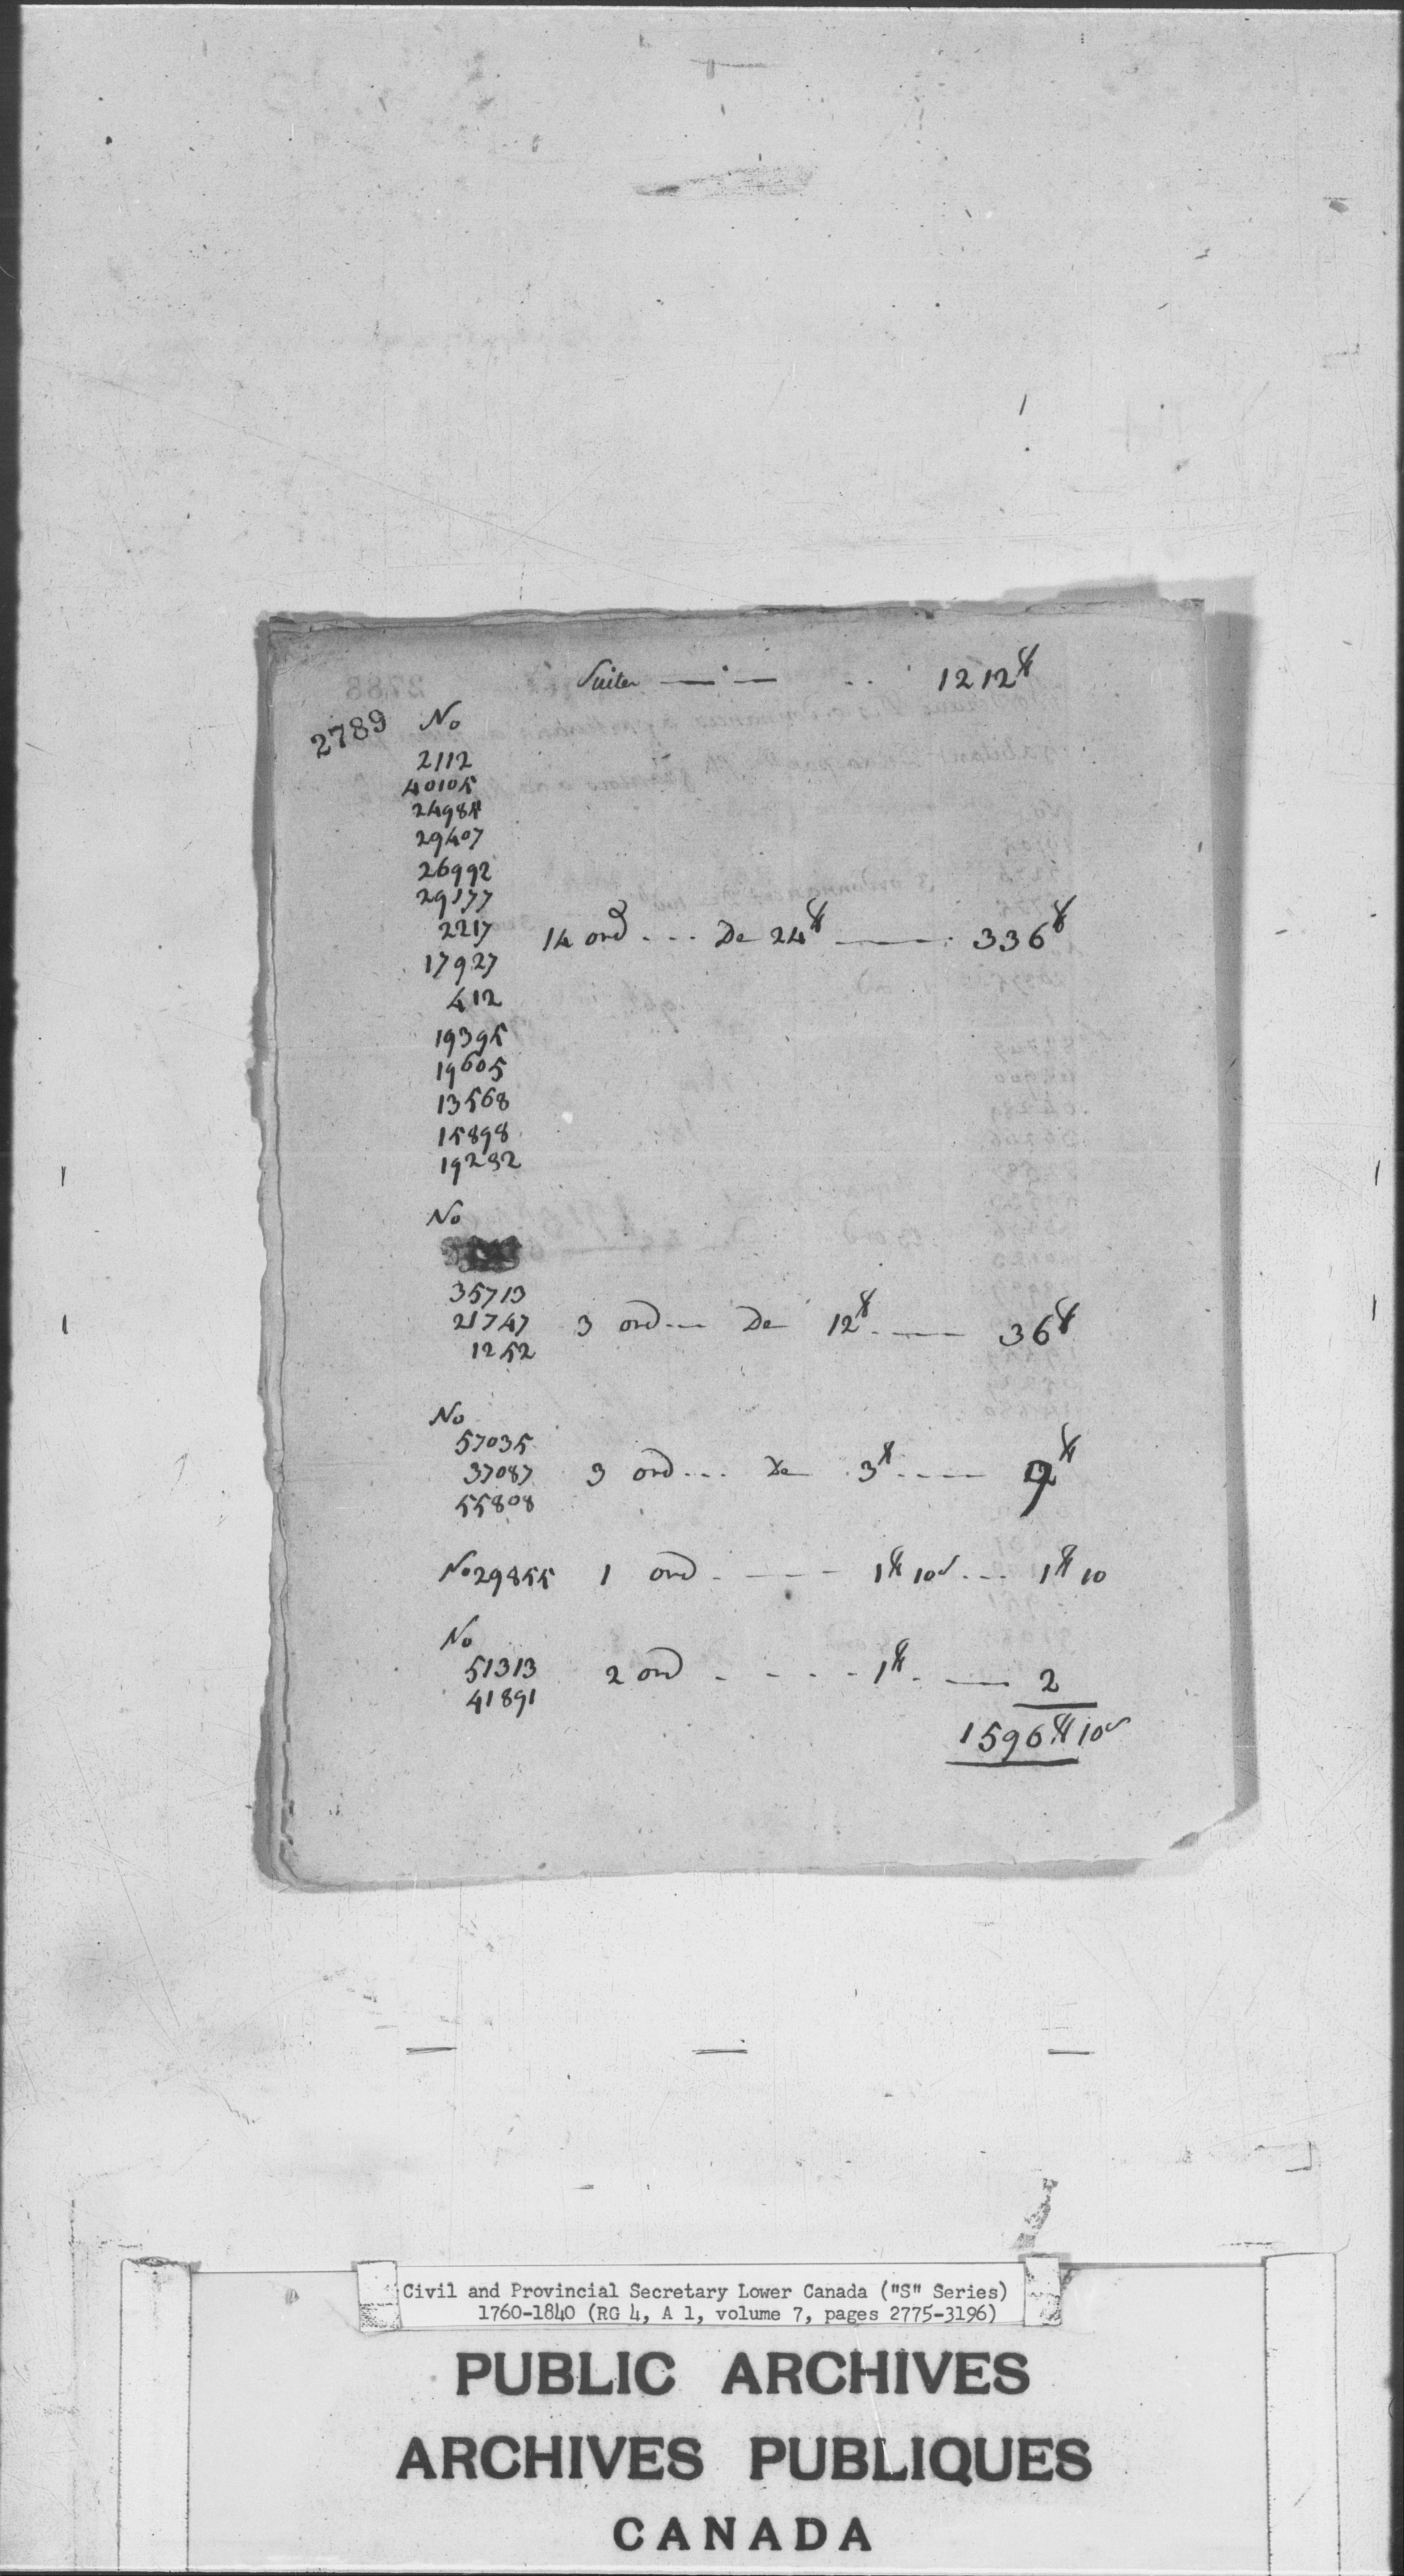 Suitte — · — . . . 1212 ℔
2789 No
2112
40105
24985
29407
26992
29177
2217 14 ord . . . De 24 ℔ ——— . 336 ℔
17927
412
19395
19605
13568
15898
19292
No
35713
21747 3 ord . . . De 12 ℔ . —— 36 ℔
1252
No
57035
37087 3 ord . . . De 3 ℔ . . —— 9 ℔
55808
No 29855 1 ord . - — - - 1 ℔ 10 s . . . 1 ℔ 10
No
51313 2 ord . . . . - 1 ℔ . —— 2
41891
1596 ℔ 10 s
Civil and Provincial Secretary Lower Canada ("S" Series)
1760-1840 (RG 4, A 1, volume 7, pages 2775-3196)
PUBLIC ARCHIVES
ARCHIVES PUBLIQUES
CANADA